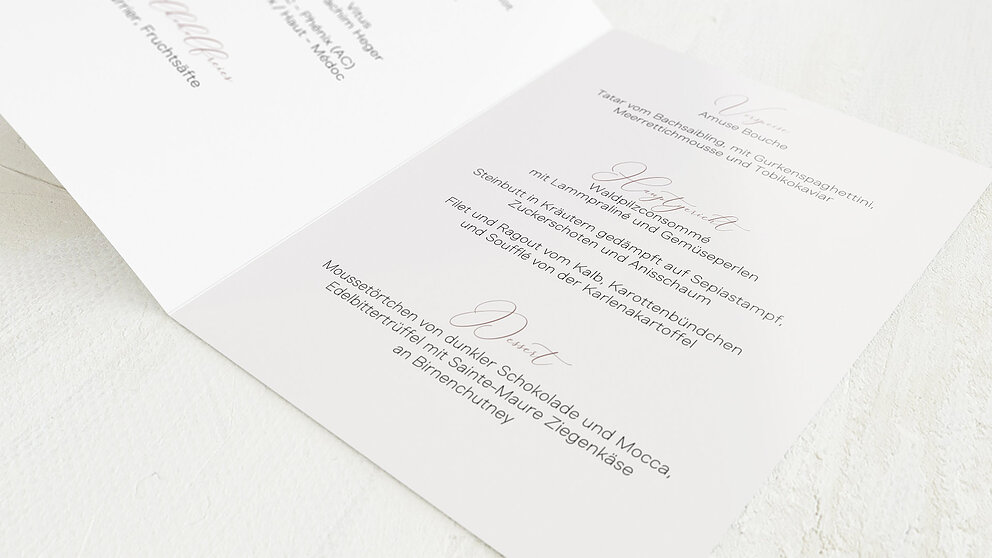 Vitus
Joachim Heger
- Phénix (AC)
/ Haut - Médoc
Fruchtsäfte
Vorspeise
Amuse Bouche
Tatar vom Bachsaibling, mit Gurkenspaghettini,
Meerrettichmousse und Tobikokaviar
Hauptgericht
Waldpilzconsommé
mit Lammpraliné und Gemüseperlen
Steinbutt in Kräutern gedämpft auf Sepiastampf,
Zuckerschoten und Anisschaum
Filet und Ragout vom Kalb, Karottenbündchen
und Soufflé von der Karlenakartoffel
Dessert
Moussetörtchen von dunkler Schokolade und Mocca,
Edelbittertrüffel mit Sainte-Maure Ziegenkäse
an Birnenchutney